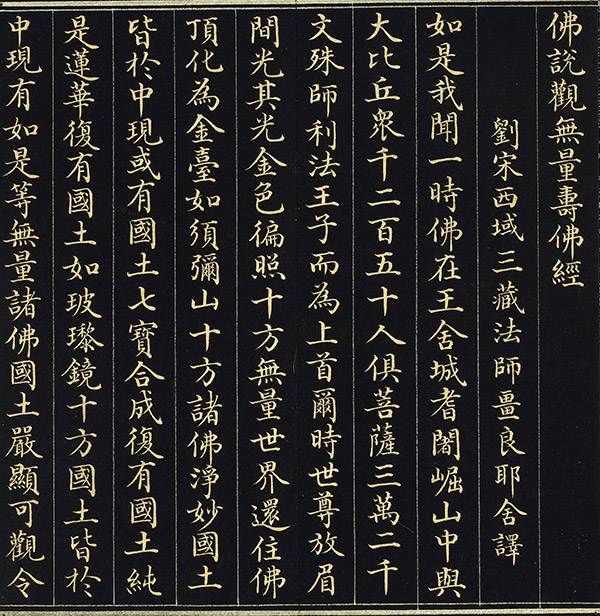 佛說觀無量壽佛經
劉宋西域三藏法師畺良耶舍譯
如是我聞一時佛在王舍城耆闍崛山中與
大比丘眾千二百五十人俱菩薩三萬二千
文殊師利法王子而為上首爾時世尊放眉
間光其光金色徧照十方無量世界還住佛
頂化為金臺如須彌山十方諸佛淨妙國土
皆於中現或有國土七寶合成復有國土純
是蓮華復有國土如玻瓈鏡十方國土皆於
中現有如是等無量諸佛國土嚴顯可觀令